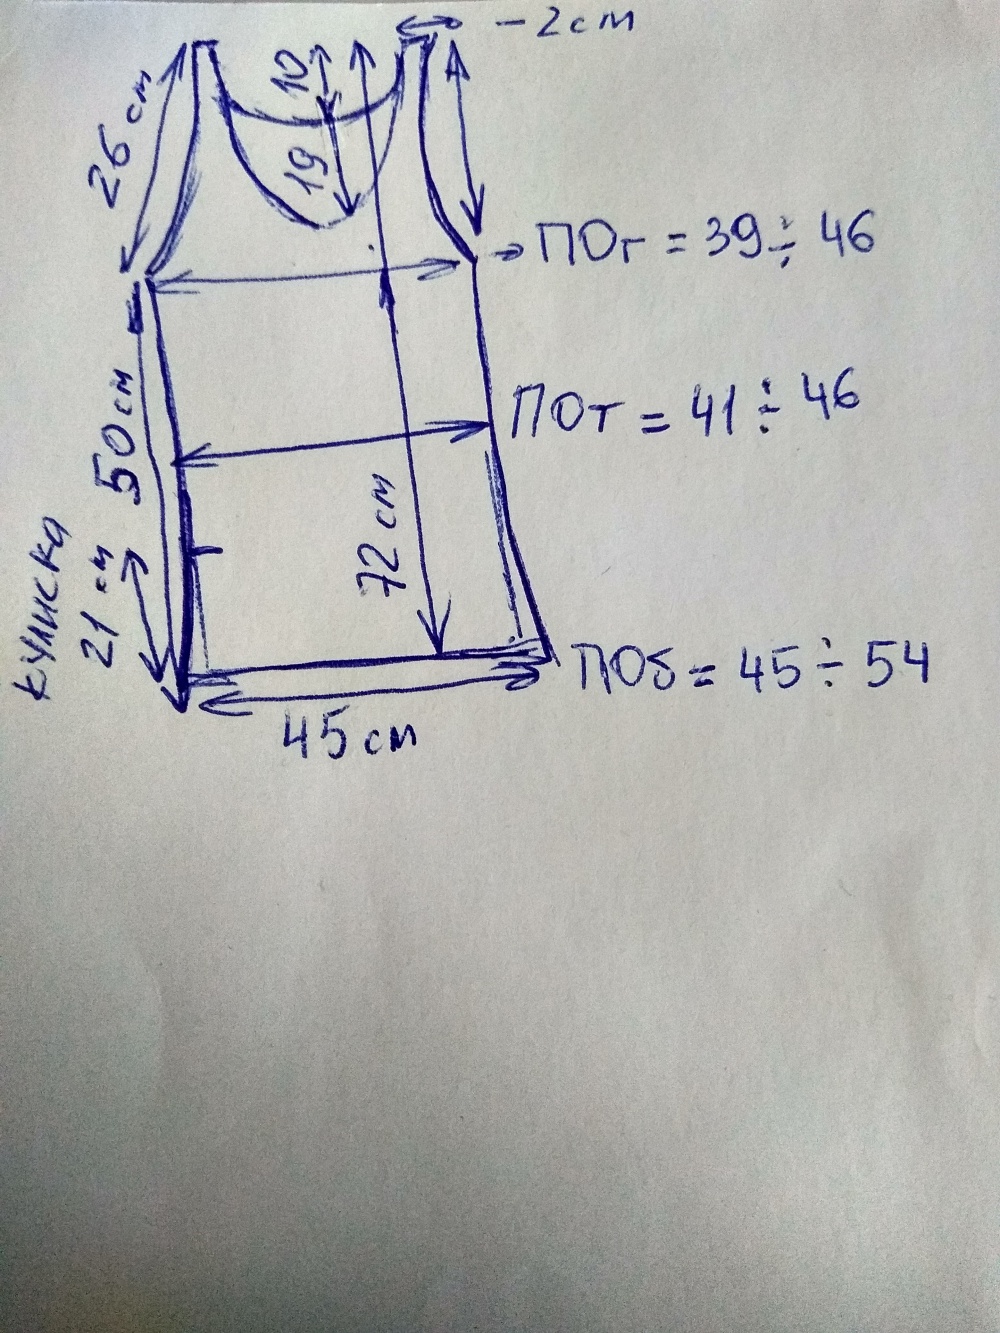 - 2 см
10
26 см
19
→ ПОг = 39 ÷ 46
50 см
ПОт = 41 ÷ 46
72 см
кулиска
21 см
ПОб = 45 ÷ 54
45 см